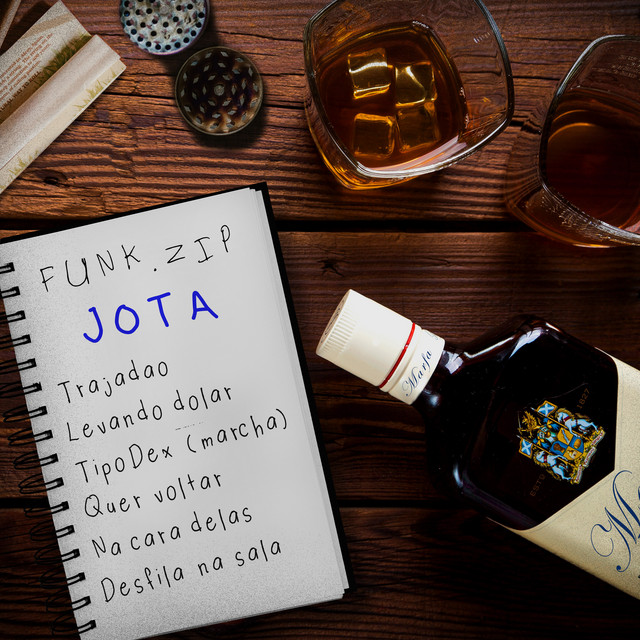 FUNK.ZIP
JOTA
Trajadao
Levando dolar
TipoDex (marcha)
Quer voltar
Na cara delas
Desfila na sala